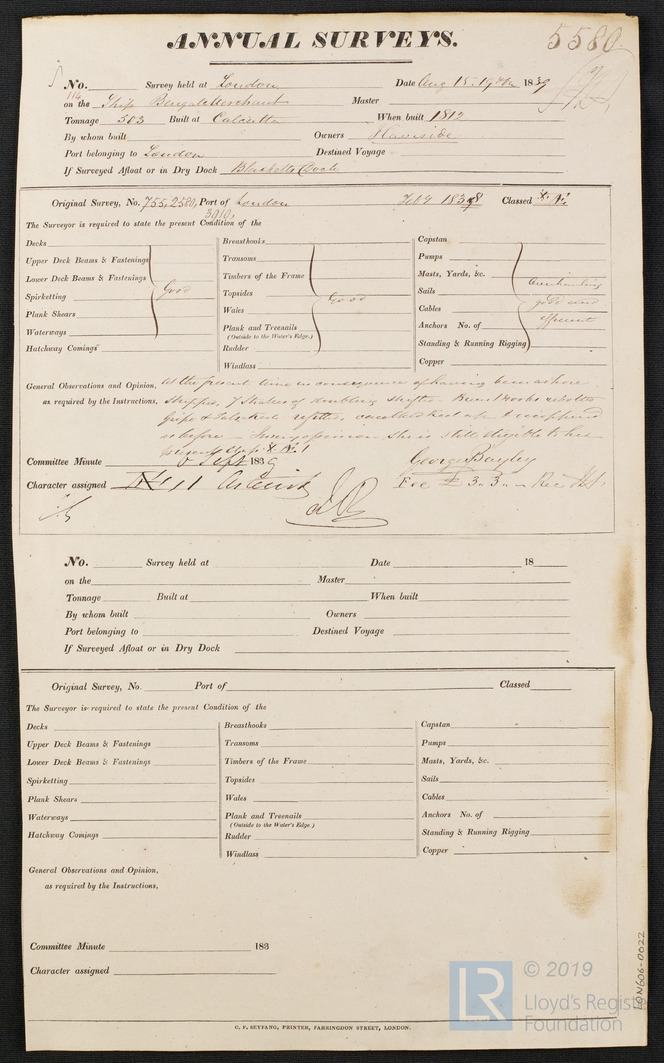 ANNUAL SURVEYS.
5580
No. 114 Survey held at London Date Aug 15. 1839
on the Ship Bengal Merchant Master
Tonnage 503 Built at Calcutta When built 1812
By whom built Owners Haviside
Port belonging to London Destined Voyage
If Surveyed Afloat or in Dry Dock Blackwall Dock
Original Survey, No. 755, 2580, 3010, Port of London 1838 Classed
The Surveyor is required to state the present Condition of the
Decks
Upper Deck Beams & Fastenings
Lower Deck Beams & Fastenings
Spirketting Good
Plank Shears
Waterways
Hatchway Comings
Breasthooks
Transoms
Timbers of the Frame
Topsides Good
Wales
Plank and Treenails
(Outside to the Water's Edge.)
Rudder
Windlass
Capstan
Pumps
Masts, Yards, &c.
Sails
Cables good and
Anchors No. of efficient
Standing & Running Rigging
Copper
General Observations and Opinion, At the present time in consequence of having been ashore
as required by the Instructions, Stripped, 7 Strakes of doubling shifted
Gripe & false keel refitted, caulked
as before In my opinion She is still eligible to her
Committee Minute 5 Sept 1839 George Bayley
Character assigned Fee £ 3. 3. -
No. Survey held at Date 18
on the Master
Tonnage Built at When built
By whom built Owners
Port belonging to Destined Voyage
If Surveyed Afloat or in Dry Dock
Original Survey, No. Port of Classed
The Surveyor is required to state the present Condition of the
Decks
Upper Deck Beams & Fastenings
Lower Deck Beams & Fastenings
Spirketting
Plank Shears
Waterways
Hatchway Comings
Breasthooks
Transoms
Timbers of the Frame
Topsides
Wales
Plank and Treenails
(Outside to the Water's Edge.)
Rudder
Windlass
Capstan
Pumps
Masts, Yards, &c.
Sails
Cables
Anchors No. of
Standing & Running Rigging
Copper
General Observations and Opinion,
as required by the Instructions,
Committee Minute 183
Character assigned
C. F. SEYFANG, PRINTER, FARRINGDON STREET, LONDON.
LON606-0022
LR
© 2019
Lloyd's Registe
Foundation